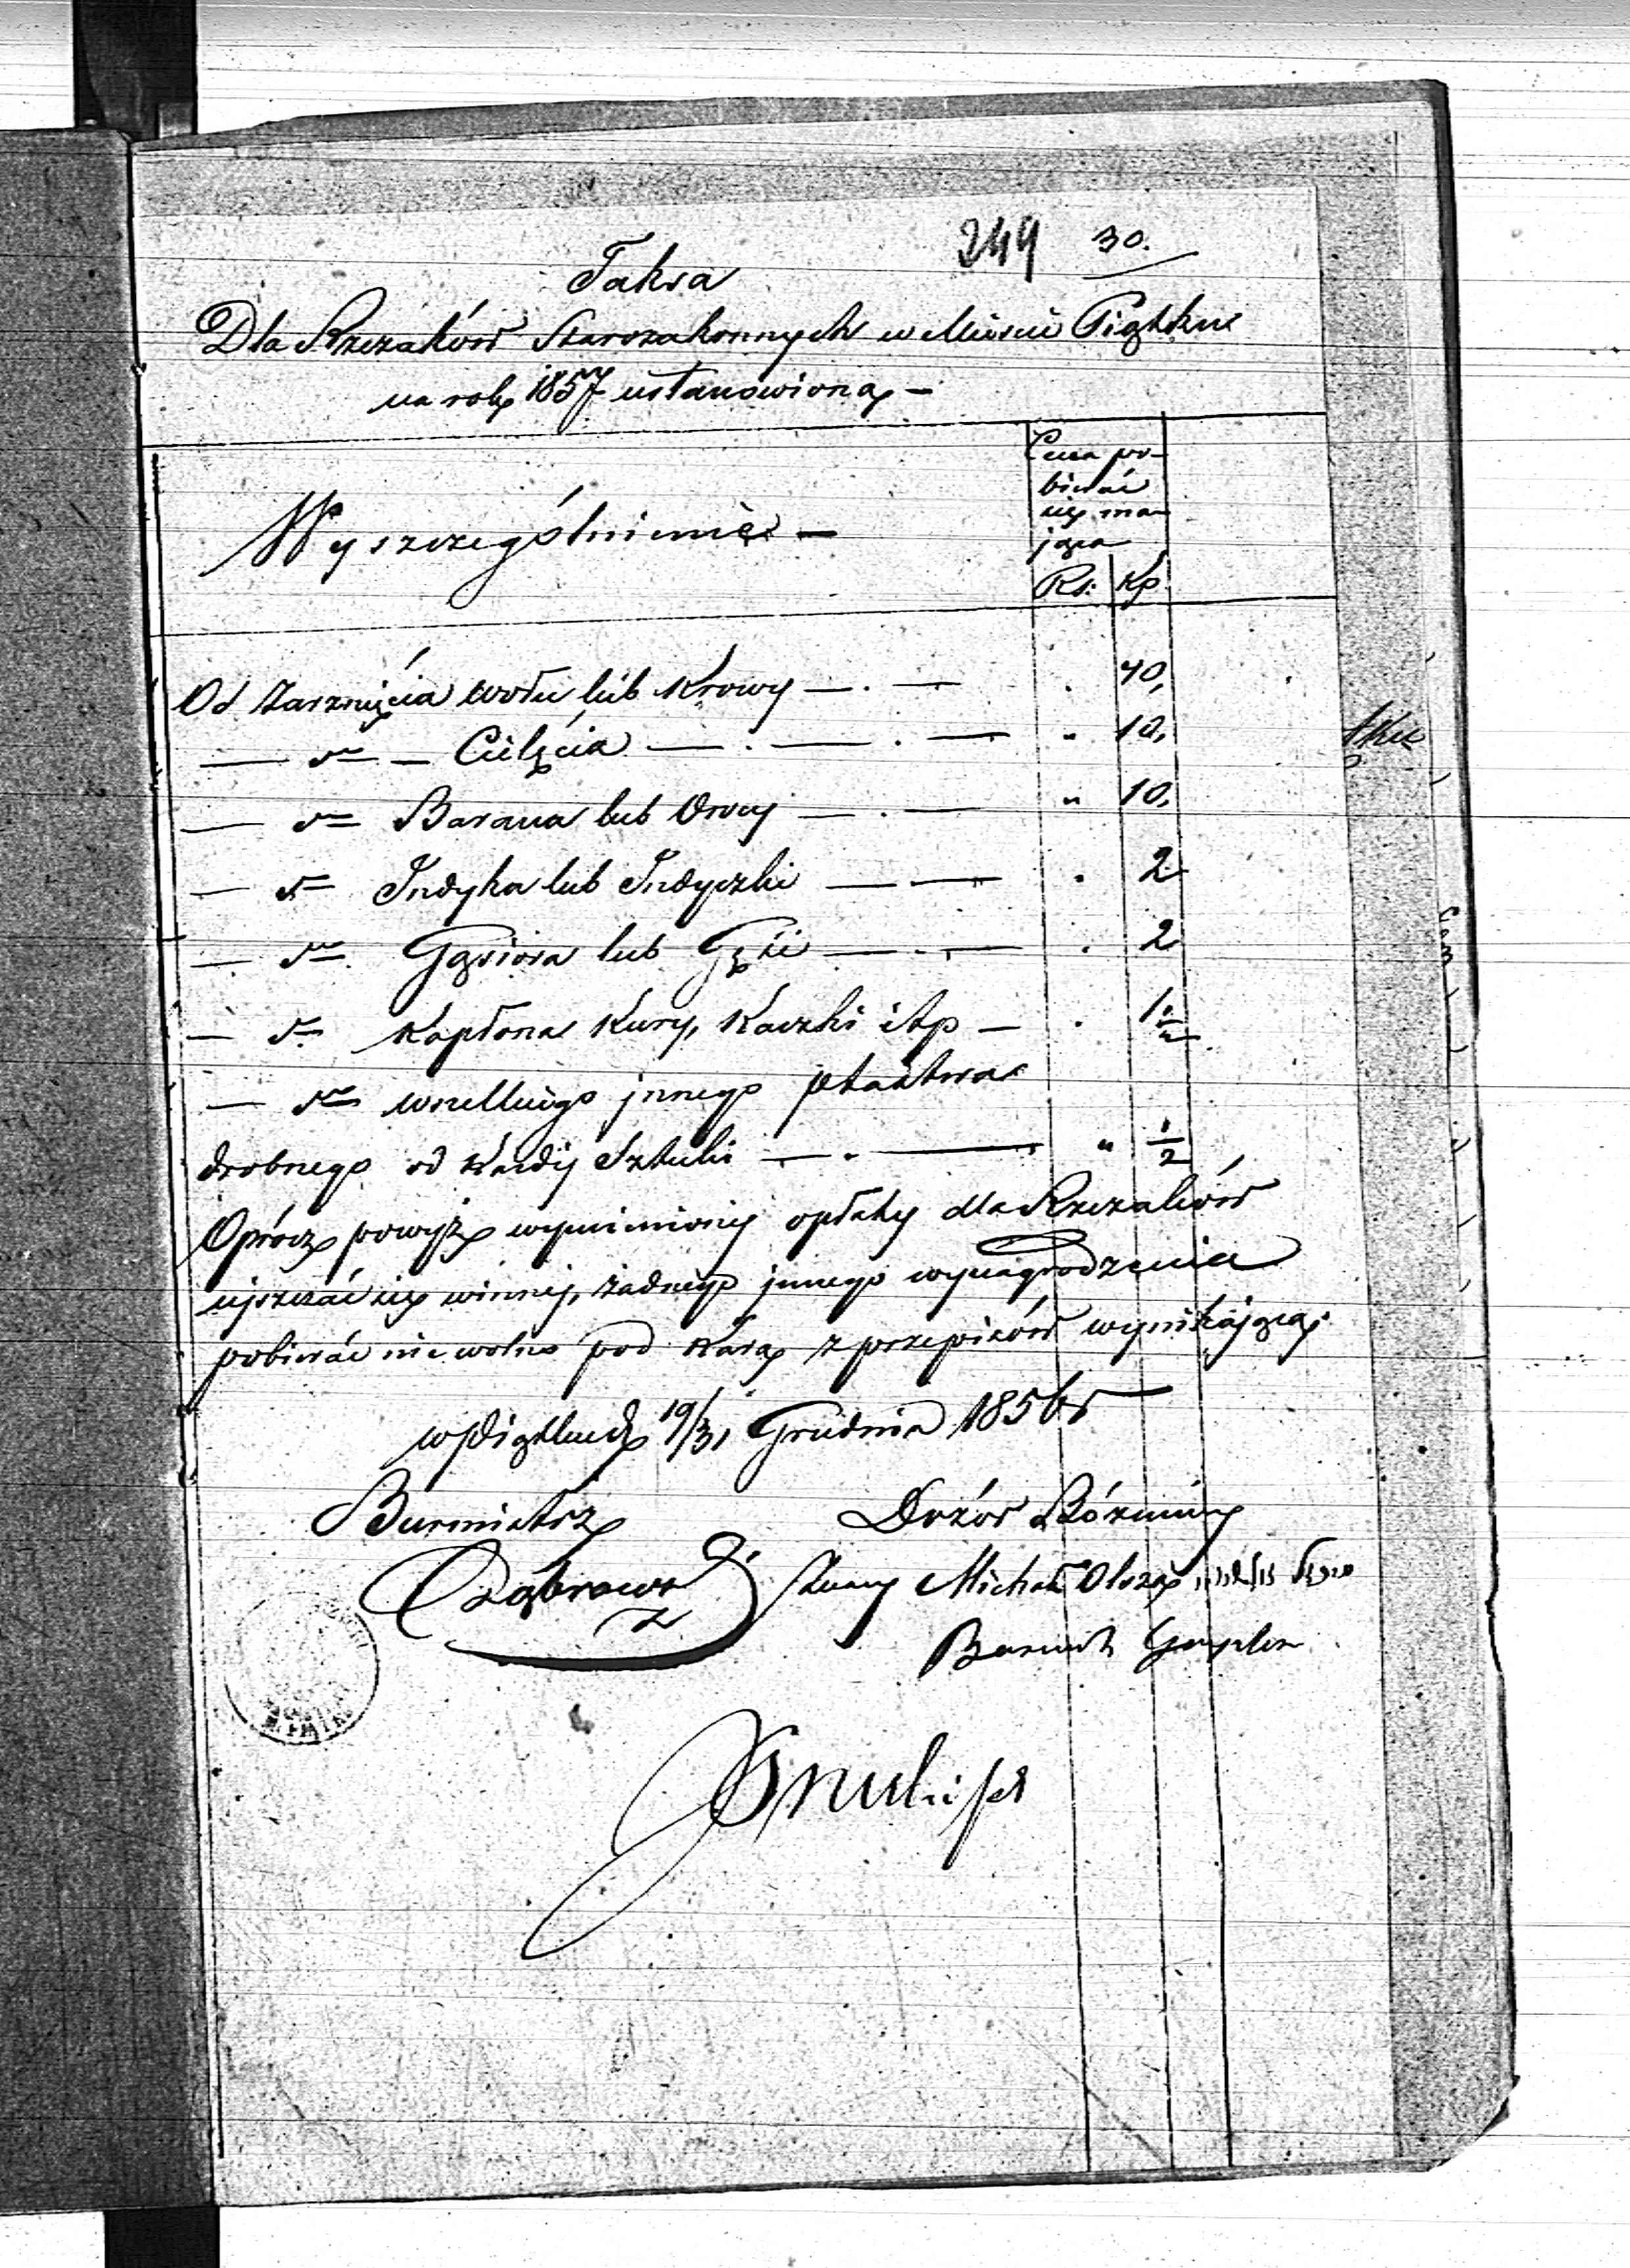 249 30.
Taksa
Dla Rzezaków Starozakonnych w Mieście Piątku
na rok 1857 ustanowiona –
Wyszczególnienie –
Cena po-
bierać
się ma-
jąca
Rs: Kp.
Od Zarznięcia wołu lub Krowy — . — . 40,
— dto — Cielęcia — . — . — " 10,
— dto Barana lub Owcy — . — " 10,
— dto Indyka lub Indyczki — — . 2
— dto Gąsiora lub Gęsi — . — . 2
— dto Kapłona Kury, Kaczki itp — . 1½
— dto wszelkiego innego ptastwa
drobnego od każdej Sztuki — . — " ½
Oprócz powyż wymienionej opłaty dla Rzezaków
uiszczać się winnej, żadnego innego wynagrodzenia
pobierać nie wolno pod karą z przepisów wynikającą.
w Piątku d. 19/31 Grudnia 1856 r
Burmistrz Dozór Bóżniczy
Dąbrows Michał
Baruch